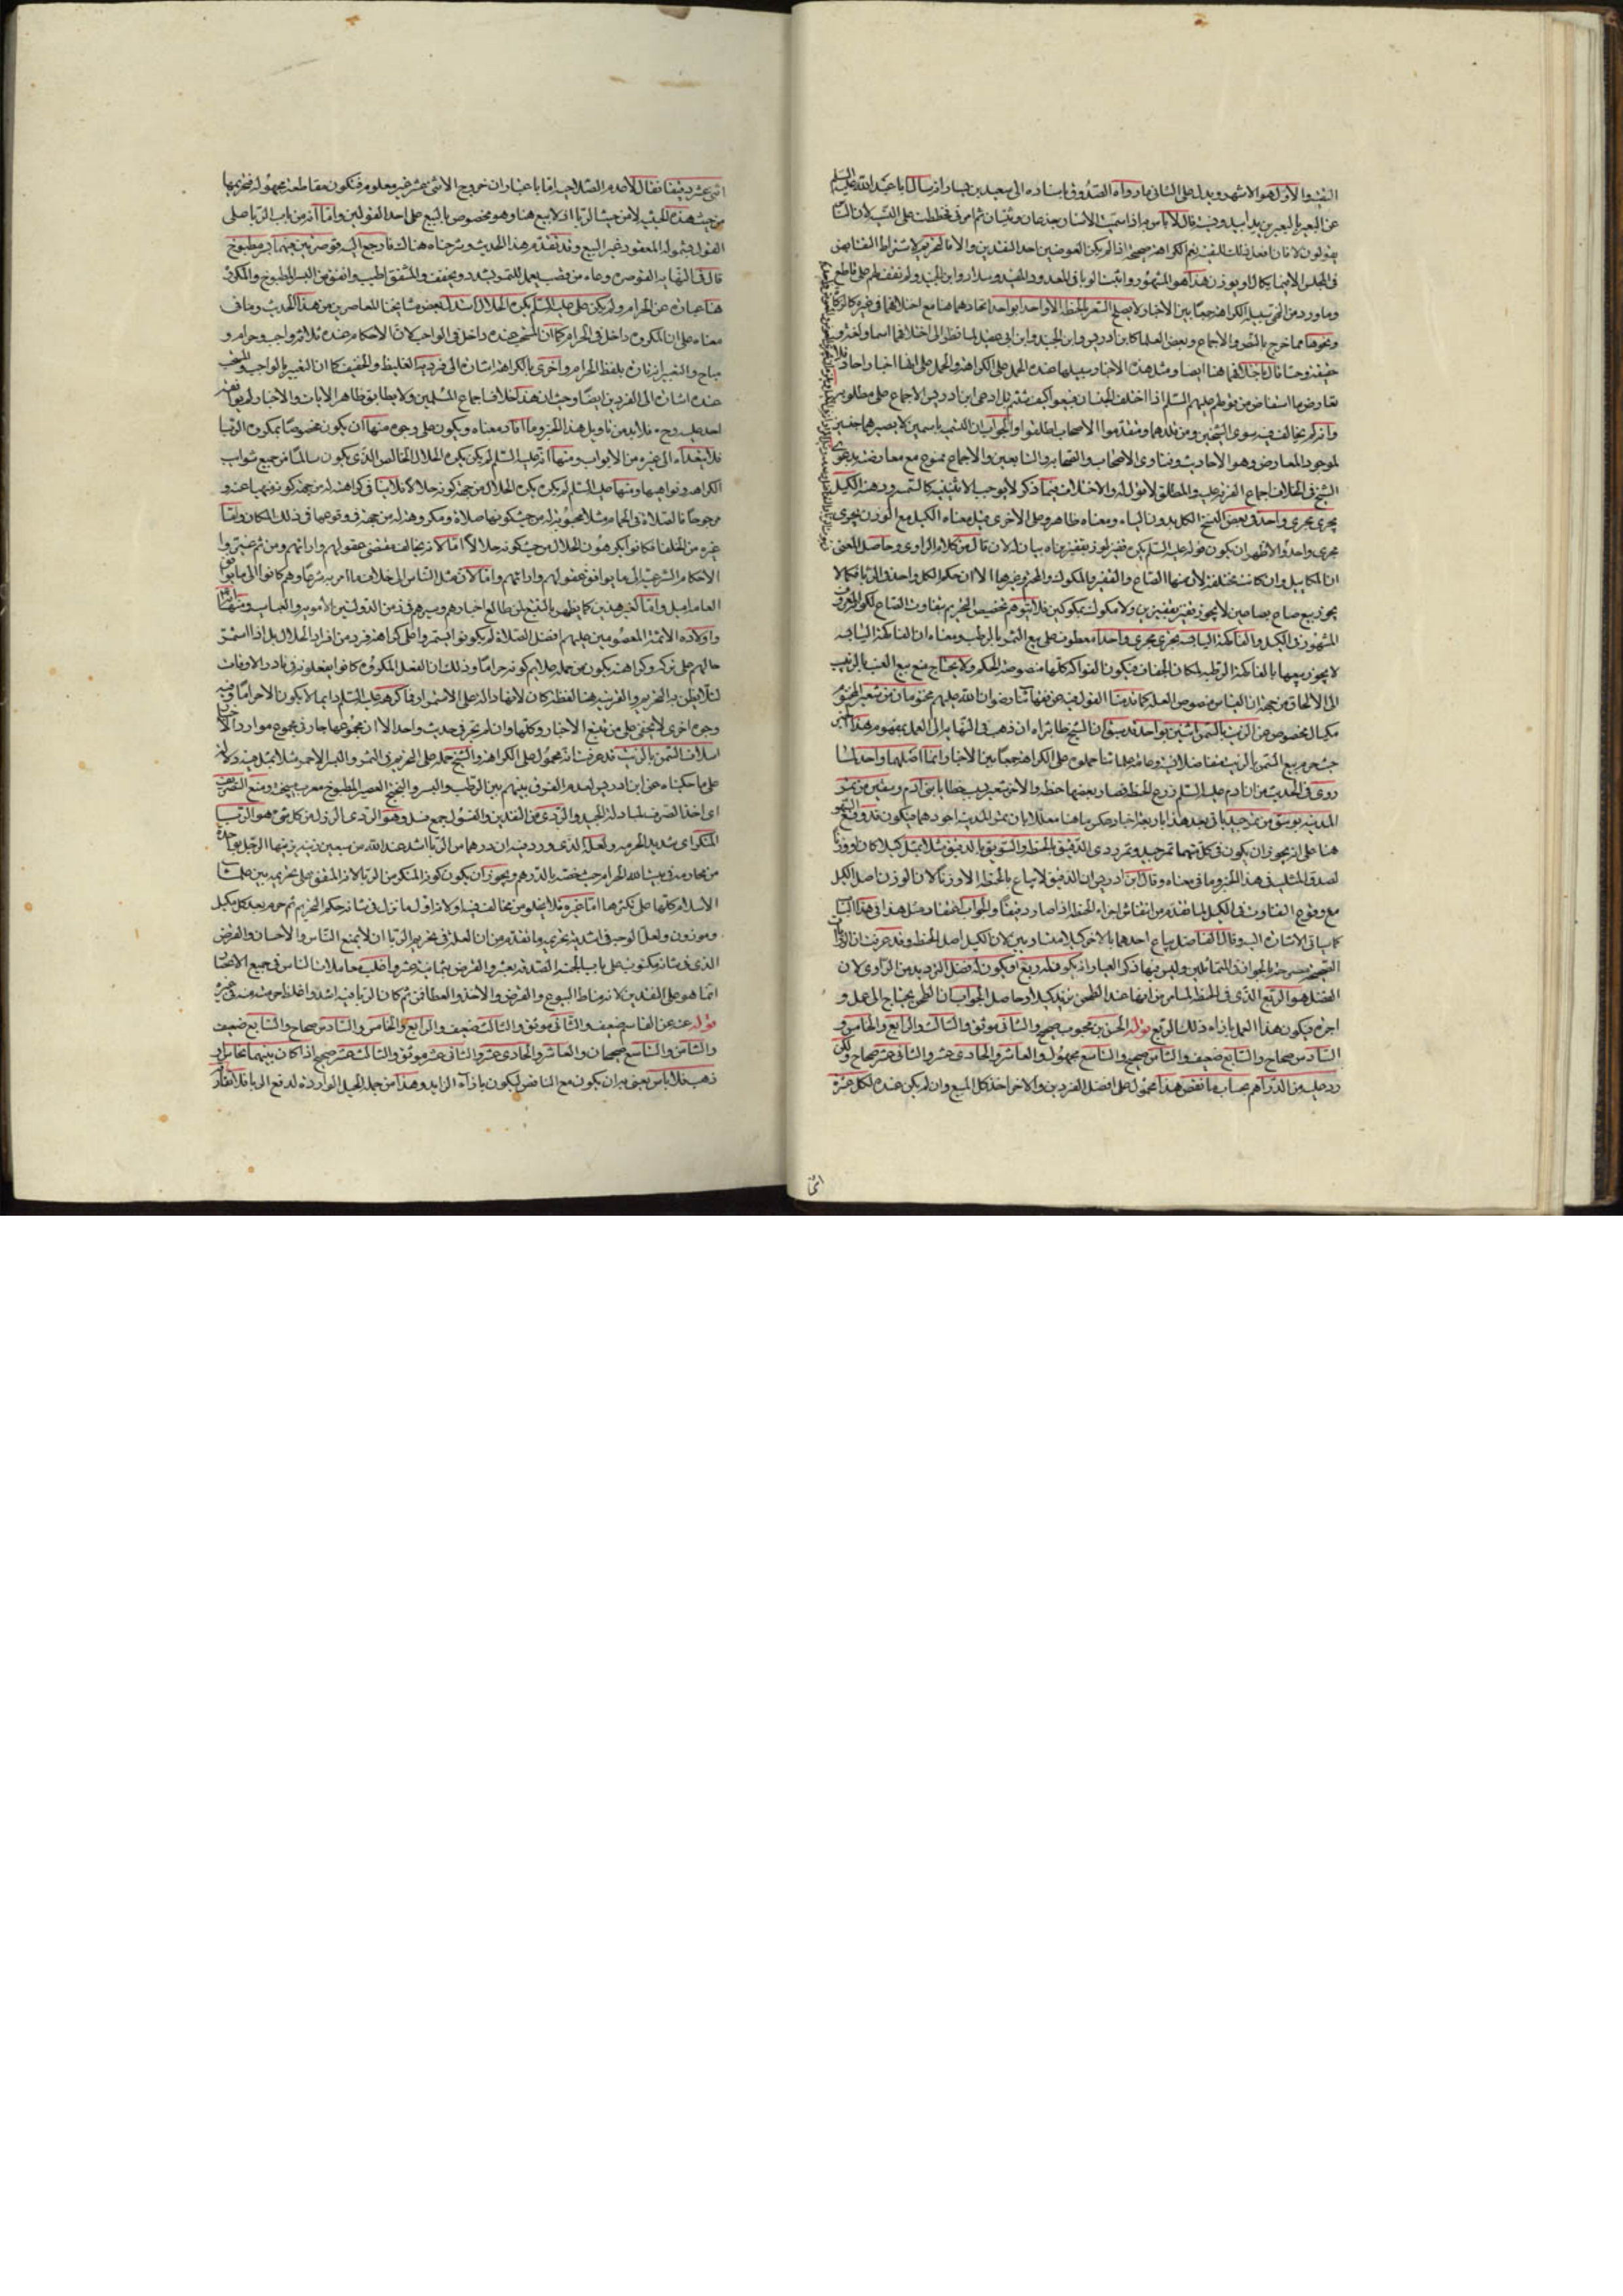 التقية والأول هو الاشهر ويدل على الثاني ما رواه الصدوق باسناده الى سعيد بن يسار انه سال ابا عبد الله عليه السلم
عن البعير بالبعيرين يدا بيد ونسية قال لا باس به اذا سميت الاسنان جذعان وثنيان ثم امرني فخططت على النسية لان الناس
يقولون لا فانما فعل ذلك للتقية نعم الكراهة صحيحة اذا لم يكن العوضين احد النقدين والا فالتحريم لاشتراط التقابض
في المجلس الا فيما يكال او يوزن هذا هو المشهور واثبت الربا في المعدود المفيد وسلار وابن الجنيد ولم نقف لهم على قاطع
وما ورد من النهي سبيله الكراهة جمعا بين الاخبار لا يصلح الشعير بالحنطة الا واحد بواحد اتحادهما هنا مع اختلافهما في غيره كالزكاة
ونحوها مما خرج بالنص والاجماع وبعض العلما كابن ادريس وابن الجنيد وابن ابي عقيل لما نظر الى اختلافهما اسما ولغة و
حقيقة وحسا قال باختلافهما هنا ايضا ومثل هذه الاخبار سبيلها عنده الحمل على الكراهة والحمل على انها اخبار احاد فلا
تعارض ما استفاض من قولهم عليهم السلم اذا اختلف الجنسان فبيعوا كيف شئتم بل ادعى ابن ادريس الاجماع على مطلوبه
وانه لم يخالف فيه سوى الشيخين ومن قلدهما ومتقدموا الاصحاب اطلقوا والجواب ان التسمية باسمين لا يصيرهما جنسين
لوجود المعارض وهو الاحاديث وفتاوى الاصحاب والصحابة والتابعين والاجماع ممنوع مع معارضته بدعوى
الشيخ في الخلاف اجماع الفرقة عليه والمطلق لا عموم له والاختلاف فيما ذكر لا يوجب الاثنينية كالتمر ودهنه الكيل
يجري مجرى واحد وفي بعض النسخ الكل بدون الياء ومعناه ظاهر وعلى الاخرى قيل معناه الكيل مع الوزن يجري
مجرى واحد والاظهر ان يكون قوله عليه السلم يكره قفيز لوز بقفيزين
ان المكاييل وان كانت مختلفة لان منها الصاع والقفيز والمكوك والمختوم وغيرها الا ان حكم الكل واحد في الربا فكما لا
يجوز بيع صاع بصاعين لا يجوز قفيز بقفيزين ولا مكوك بمكوكين فلا يتوهم تخصيص التحريم بتفاوت الصاع لكونه المعروف
المشهور في الكيل والفاكهة اليابسة يجري مجرى واحدا معطوف على بيع التمر بالرطب ومعناه ان الفاكهة اليابسة
لا يجوز بيعها بالفاكهة الرطبة لمكان الجفاف فيكون الفواكه كلها منصوصة الحكم ولا يحتاج منع بيع العنب بالزبيب
الى الالحاق من جهة ان القياس منصوص العلة كما قدمنا القول فيه عن فقهائنا رضوان الله عليهم مختومان من شعير المختوم
مكيال مخصوص عن الزبيب بالتمر اثنين بواحد قد سبق ان الشيخ طاب ثراه ان ذهب في النهاية الى العمل بمفهوم هذا الخبر
حيث حرم بيع التمر بالزبيب متفاضلا نسية وعامة علمائنا حملوه على الكراهة جمعا بين الاخبار وانما اصلهما واحد لما
روي في الحديث من ان ادم عليه السلم زرع الحنطة فصار بعضها حنطة والاخر شعير
المدينة بوسق من تمر خيبر ياتي بعد هذا باربعة اخبار حكم ما هنا معللا بان تمر المدينة اجودهما فيكون قد وقع السهو
هنا على انه يجوز ان يكون في كلتيهما تمر جيد وتمر ردي الدقيق بالحنطة والسويق بالدقيق مثلا بمثل كيلا كان او وزنا
لصدق المثلية في هذا الخبر وما في معناه وقال ابن ادريس ان الدقيق لا يباع بالحنطة الا وزنا لان الوزن اصل الكيل
مع وقوع التفاوت في الكيل لما تقدم من انتفاش اجزاء الحنطة اذا صارت دقيقا والجواب
كما ياتي الاشارة اليه وقال الفاضل يباع احدهما بالاخر كيلا متساويين لان الكيل اصل الحنطة وقد عرفت ان الروايات
الصحيحة صريحة بالجواز في المتماثلين وليس فيها ذكر العيار انه يكون له ريع او يكون له فضل الترديد من الراوي لان
الفضل هو الريع الذي في الحنطة لما من ان بها عند الطحن يزيد كيلا وحاصل الجواب ان الطحن يحتاج الى عمل و
اجرة فيكون هذا العمل بازاء ذلك الريع قوله الحسن بن محبوب صحيح والثاني موثق والثالث والرابع والخامس و
السادس صحاح والسابع ضعيف والثامن صحيح والتاسع مجهول والعاشر والحادي عشر والثاني عشر صحاح ولكن
رد عليه من الدراهم بحساب ما نقص هذا محمول على افضل الفردين والاخر اخذ كل المبيع وان لم يكن عنده لكل عشرة
اثني
اثني عشر دقيقا فقال لا عدم الصلاحية اما باعتبار ان خروج الاثني عشر غير معلوم فتكون مقاطعة مجهولة فتحريمها
من حيث هذه الحيثية لا من حيث الربا اذ لا بيع هنا وهو مخصوص بالبيع على احد القولين واما انه من باب الربا على
القول بشموله المعقود غير البيع وقد تقدم هذا الحديث وشرحناه هناك فارجع اليه قوصرتين فيهما بسر مطبوخ
قال في النهاية القوصرة وعاء من قصب يعمل للتمر ويشدد ويخفف والمشقق اطيب واتقن من البسر المطبوخ والمكروه
هنا عبارة عن الحرام ولم يكن علي عليه السلم يكره الحلال استدل بعض مشايخنا المعاصرين من هذا الحديث وما في
معناه على ان المكروه داخل في الحرام كما ان المستحب عنده داخل في الواجب لان الاحكام عنده ثلاثة واجب وحرام و
مباح والتعبير تارة بلفظ الحرام واخرى بالكراهة اشارة الى فرديه الغليظ والخفيف كما ان التعبير بالواجب والمستحب
عنده اشارة الى الفردين ايضا وحيث ان هذا خلاف اجماع المسلمين ولا يطابق ظاهر الايات والاخبار لم يوافقه
احد عليه وح فلا بد من تاويل هذا الخبر وما افاد معناه ويكون على وجوه منها ان يكون مخصوصا بمكروه الربا
فلا يتعداه الى غيره من الابواب ومنها انه عليه السلم لم يكن يكره الحلال الخالص الذي يكون سالما من جميع شوائب
الكراهة ونواهيها ومنها عليه السلم لم يكن يكره الحلال من جهة كونه حلالا فلا ينافي كراهته له من جهة كونه منهيا عنه و
مرجوحا فالصلاة في الحمام مثلا محبوبة له من حيث كونها صلاة ومكروهة له من جهة وقوعها في ذلك المكان واما
غيره من الخلفا فكانوا يكرهون الحلال من حيث كونه حلالا اما لانه يخالف مقتضى عقولهم واراداتهم ومن ثم غيروا
الاحكام الشرعية الى ما يوافق عقولهم واراداتهم واما لان مثل الناس الى خلاف ما امر به شرعا وهم كانوا الى ما يوافق
العامة اميل واما كغير هذين كما يظهر بالتتبع لمن طالع اخبارهم وسيرهم في زمن الدولتين الاموية والعباسية ومنها انه
واولاده الائمة المعصومين عليهم افضل الصلاة لم يكونوا
حالهم على تركه وكراهته يكون من جملة علايم كونه حراما وذلك ان الفعل المكروه كانوا يفعلونه في نادر الاوقات
لئلا يظن به التحريم والقرينة هنا لفظة كان لانها دالة على الاستمرار فما كرهه عليه السلم دايما لا يكون الا حراما وفيه
وجوه اخرى لا تخفى على من تتبع الاخبار وكلها وان لم تجر في حديث واحد الا ان مجموعها جار في مجموع موارد الاخبار
اسلاف السمن بالزيت قد عرفت انه محمول على الكراهة والشيخ حمله على التحريم في التمر والبسر الاحمر مثلا بمثل فيه دلالة
على ما حكيناه عن ابن ادريس لعدم الفرق بينهم بين الرطب والبسر والبختج العصير المطبوخ معرب مي پخته ومنع التصريف
اي اخذ الصرف لمبادلة الجيد والردي من النقدين والفسول جمع فسل وهو الردي الرذل من كل شي هو الربا
المنكر اي شديد الحرمة ولعله الذي ورد فيه ان درهما من الربا اشد عند الله من سبعين زنية يزنيها الرجل بواحدة
من محارمه في بيت الله الحرام حيث خصه بالدرهم ويجوز ان يكون كونه المنكر من الربا لانه المتفق على تحريمه بين علما
الاسلام كلها على نكرها اما غيره فلا يخلو من مخالف فيه او لانه اول ما نزل في شانه حكم التحريم ثم حرم بعد كل مكيل
وموزون ولعل الوجه في اشدية تحريمه ما تقدم من ان العلة في تحريم الربا ان لا يمنع الناس والاحسان والقرض
الذي في شانه مكتوب على باب الجنة الصدقة بعشرة والقرض بثمانية عشر واغلب معاملات الناس في جميع الاعصار
انما هو على النقدين لانه مناط البيوع والقرض والاخذ والعطا فمن ثم كان الربا فيه اشد واغلظ حرمة منه في غيره
قوله عنه عن القاسم ضعيف والثاني موثق والثالث ضعيف والرابع والخامس والسادس صحاح والسابع ضعيف
والثامن والتاسع صحيحان والعاشر والحادي عشر والثاني عشر موثق والثالث عشر صحيح اذا كان بينهما نحاس او
ذهب فلا باس يعني به ان يكون مع الناقص ليكون بازاء الزايد وهذا من جملة الحيل الواردة لدفع الربا فلا